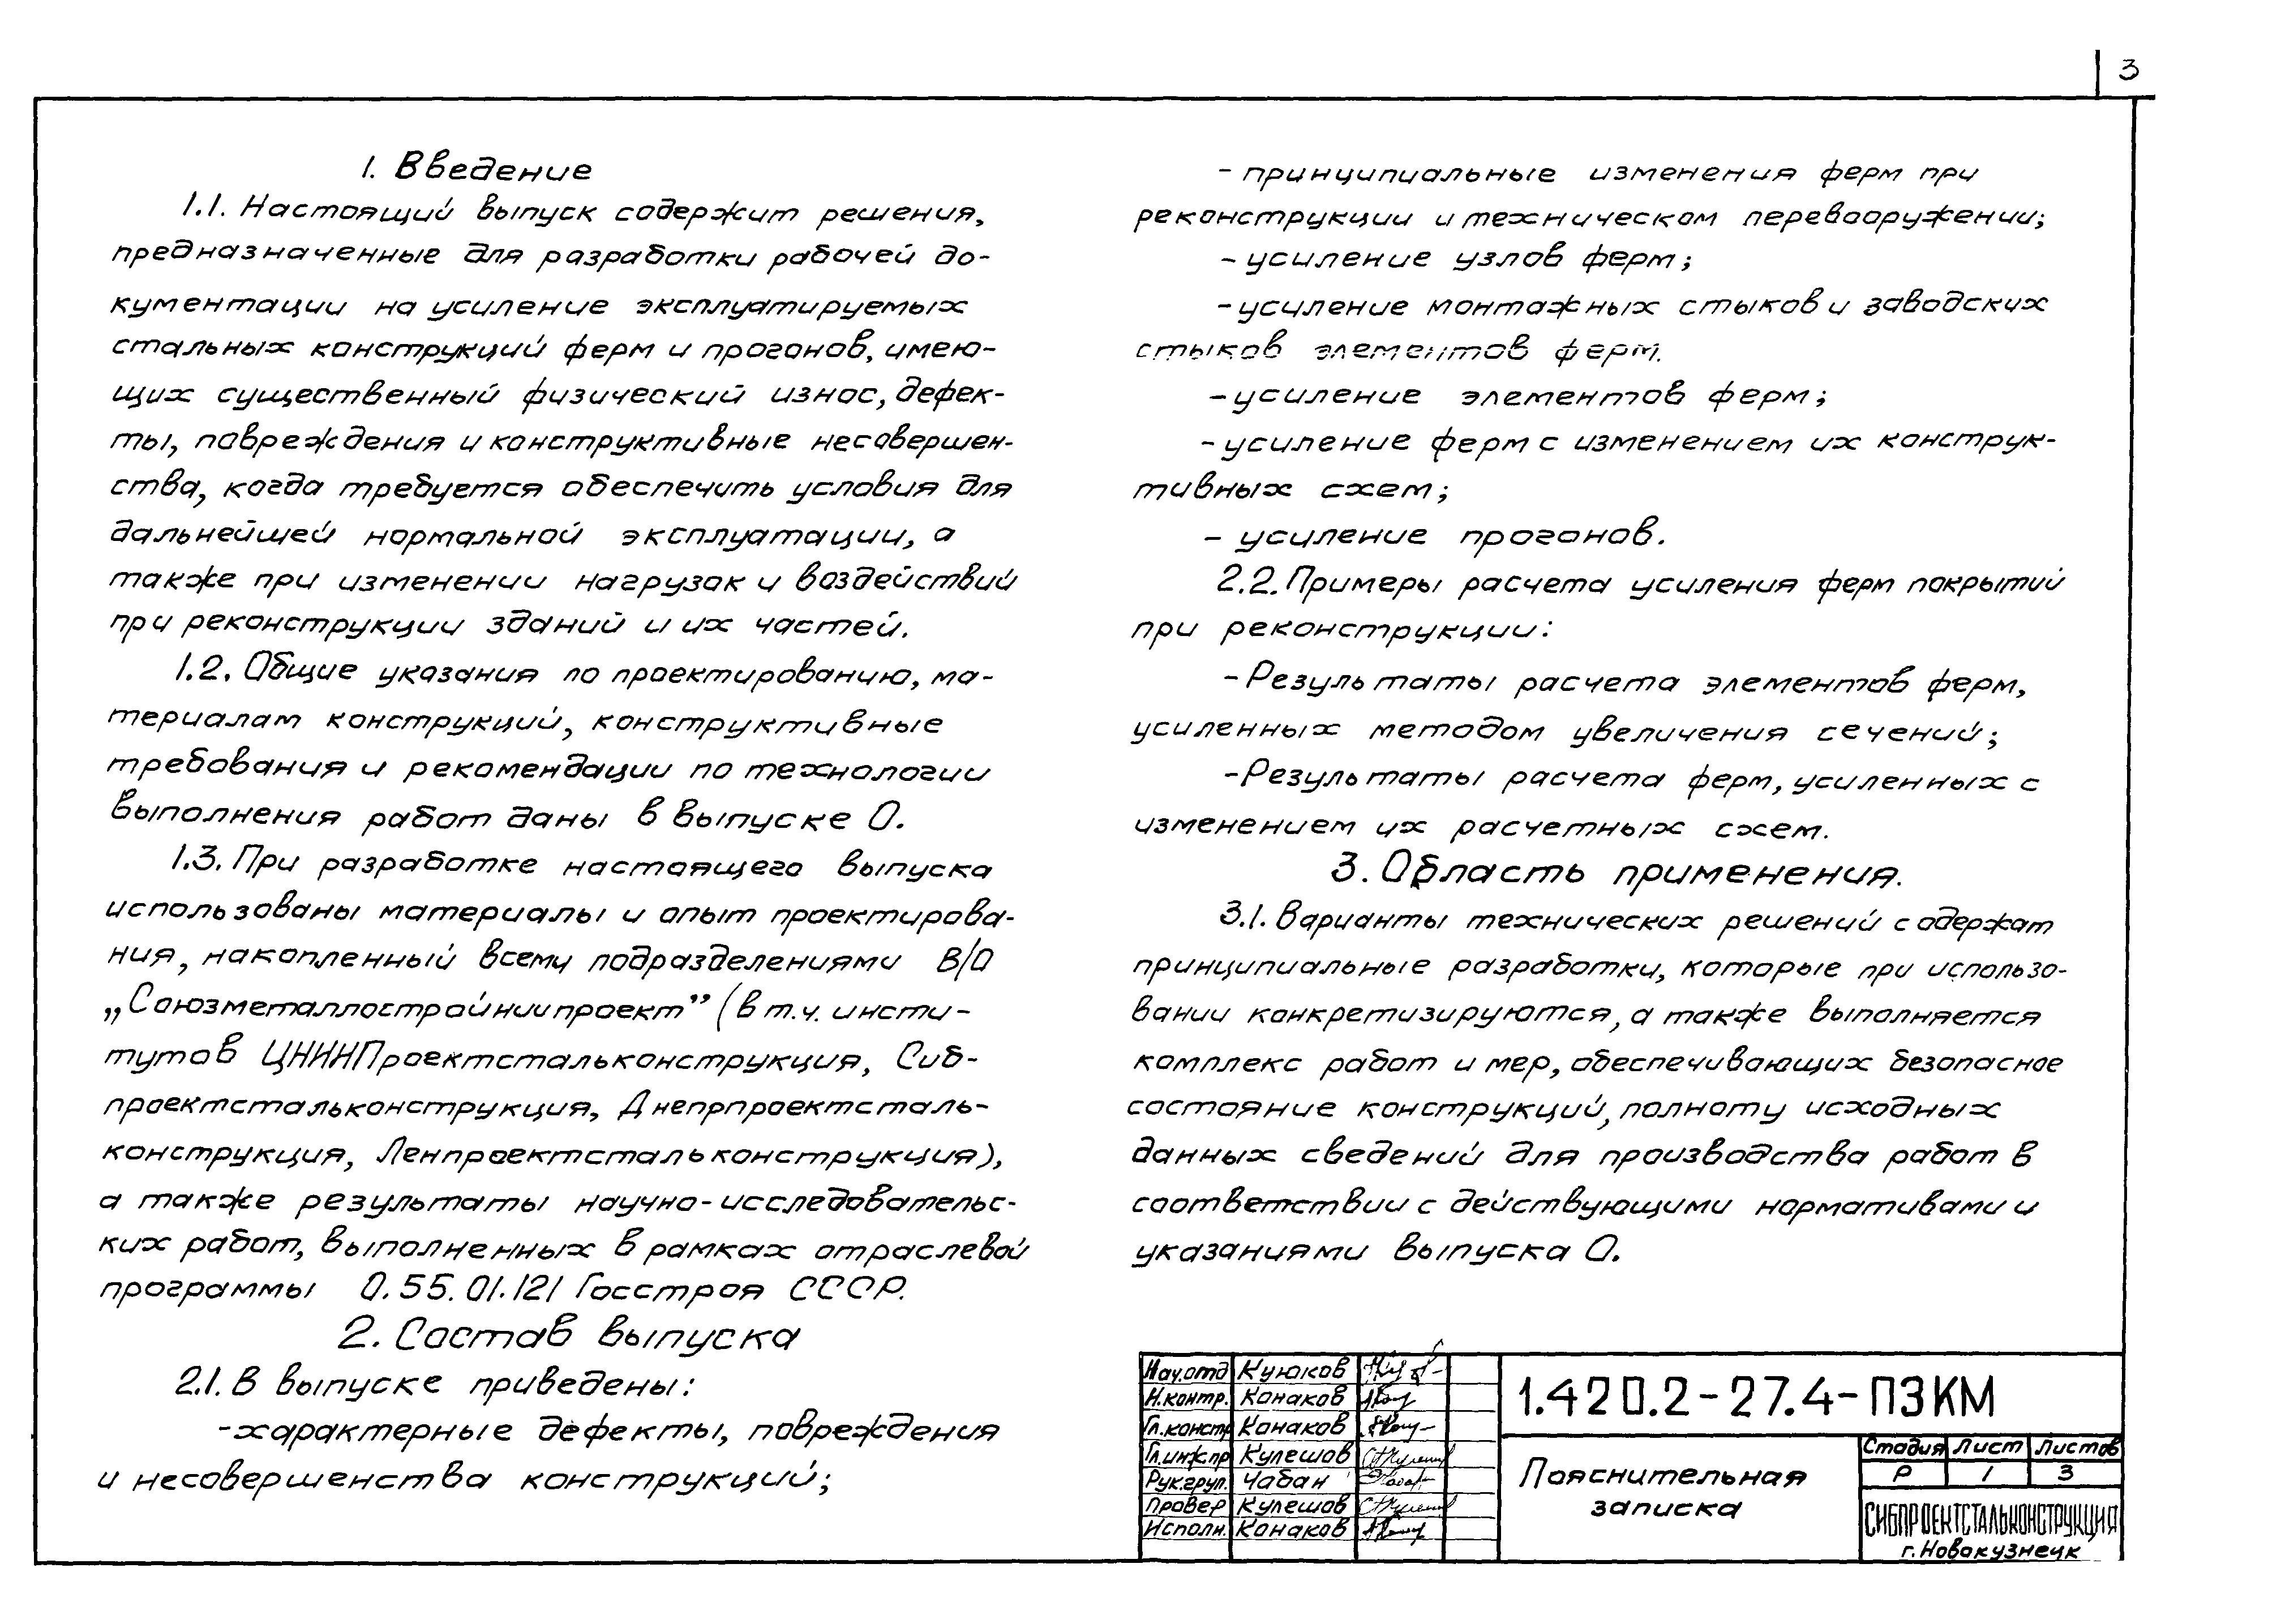 3
1. Введение
1.1. Настоящий выпуск содержит решения,
предназначенные для разработки рабочей до-
кументации на усиление эксплуатируемых
стальных конструкций ферм и прогонов, имею-
щих существенный физический износ, дефек-
ты, повреждения и конструктивные несовершен-
ства, когда требуется обеспечить условия для
дальнейшей нормальной эксплуатации, а
также при изменении нагрузок и воздействий
при реконструкции зданий и их частей.
1.2. Общие указания по проектированию, ма-
териалам конструкций, конструктивные
требования и рекомендации по технологии
выполнения работ даны в выпуске 0.
1.3. При разработке настоящего выпуска
использованы материалы и опыт проектирова-
ния, накопленный всему подразделениями В/О
„Союзметаллостройниипроект” (в т.ч. инсти-
тутов ЦНИИПроектстальконструкция, Сиб-
проектстальконструкция, Днепрпроектсталь-
конструкция, Ленпроектстальконструкция),
а также результаты научно-исследовательс-
ких работ, выполненных в рамках отраслевой
программы 0.55.01.121 Госстроя СССР.
2. Состав выпуска
2.1. В выпуске приведены:
-характерные дефекты, повреждения
и несовершенства конструкций;
- принципиальные изменения ферм при
реконструкции и техническом перевооружении;
- усиление узлов ферм;
-усиление монтажных стыков и заводских
стыков элементов ферм.
-усиление элементов ферм;
-усиление ферм с изменением их конструк-
тивных схем;
- усиление прогонов.
2.2. Примеры расчета усиления ферм покрытий
при реконструкции:
-Результаты расчета элементов ферм,
усиленных методом увеличения сечений;
-Результаты расчета ферм, усиленных с
изменением их расчетных схем.
3. Область применения.
3.1. Варианты технических решений содержат
принципиальные разработки, которые при использо-
вании конкретизируются, а также выполняется
комплекс работ и мер, обеспечивающих безопасное
состояние конструкций, полноту исходных
данных сведений для производства работ в
соответствии с действующими нормативами и
указаниями выпуска 0.
Нач.отд Куюков
Н.контр. Конаков
Гл.констр Конаков
Гл.инж.пр Кулешов
Рук.груп. Чабан
Провер Кулешов
Исполн. Конаков
1.420.2-27.4-ПЗКМ
Пояснительная
записка
Стадия Лист Листов
Р 1 3
СИБПРОЕКТСТАЛЬКОНСТРУКЦИЯ
г. Новокузнецк